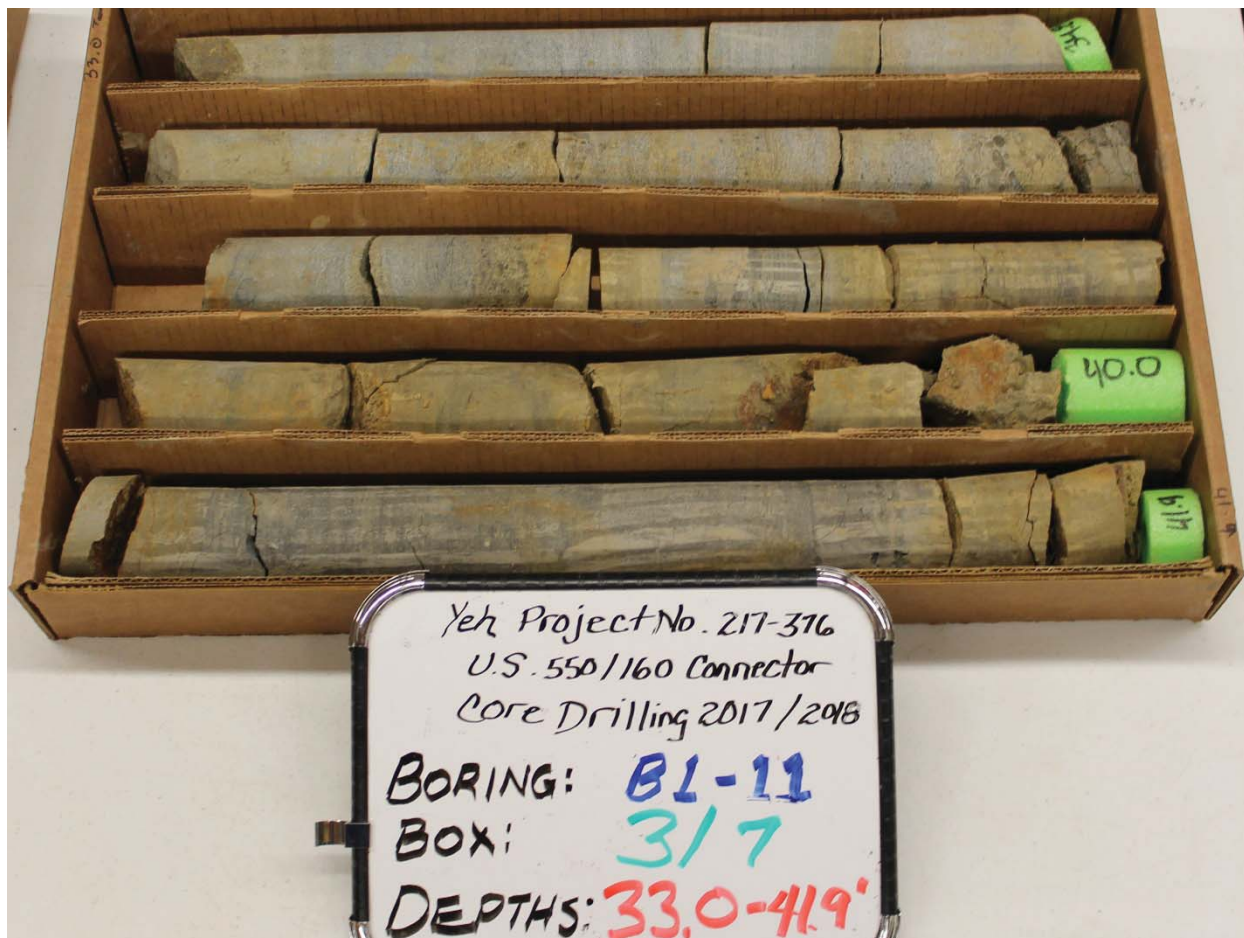 33.0
40.0
41.9
41.9
Yeh Project No. 217-376
U.S. 550/160 Connector
Core Drilling 2017/2018
BORING: B1-11
BOX: 3/7
DEPTHS: 33.0-41.9'